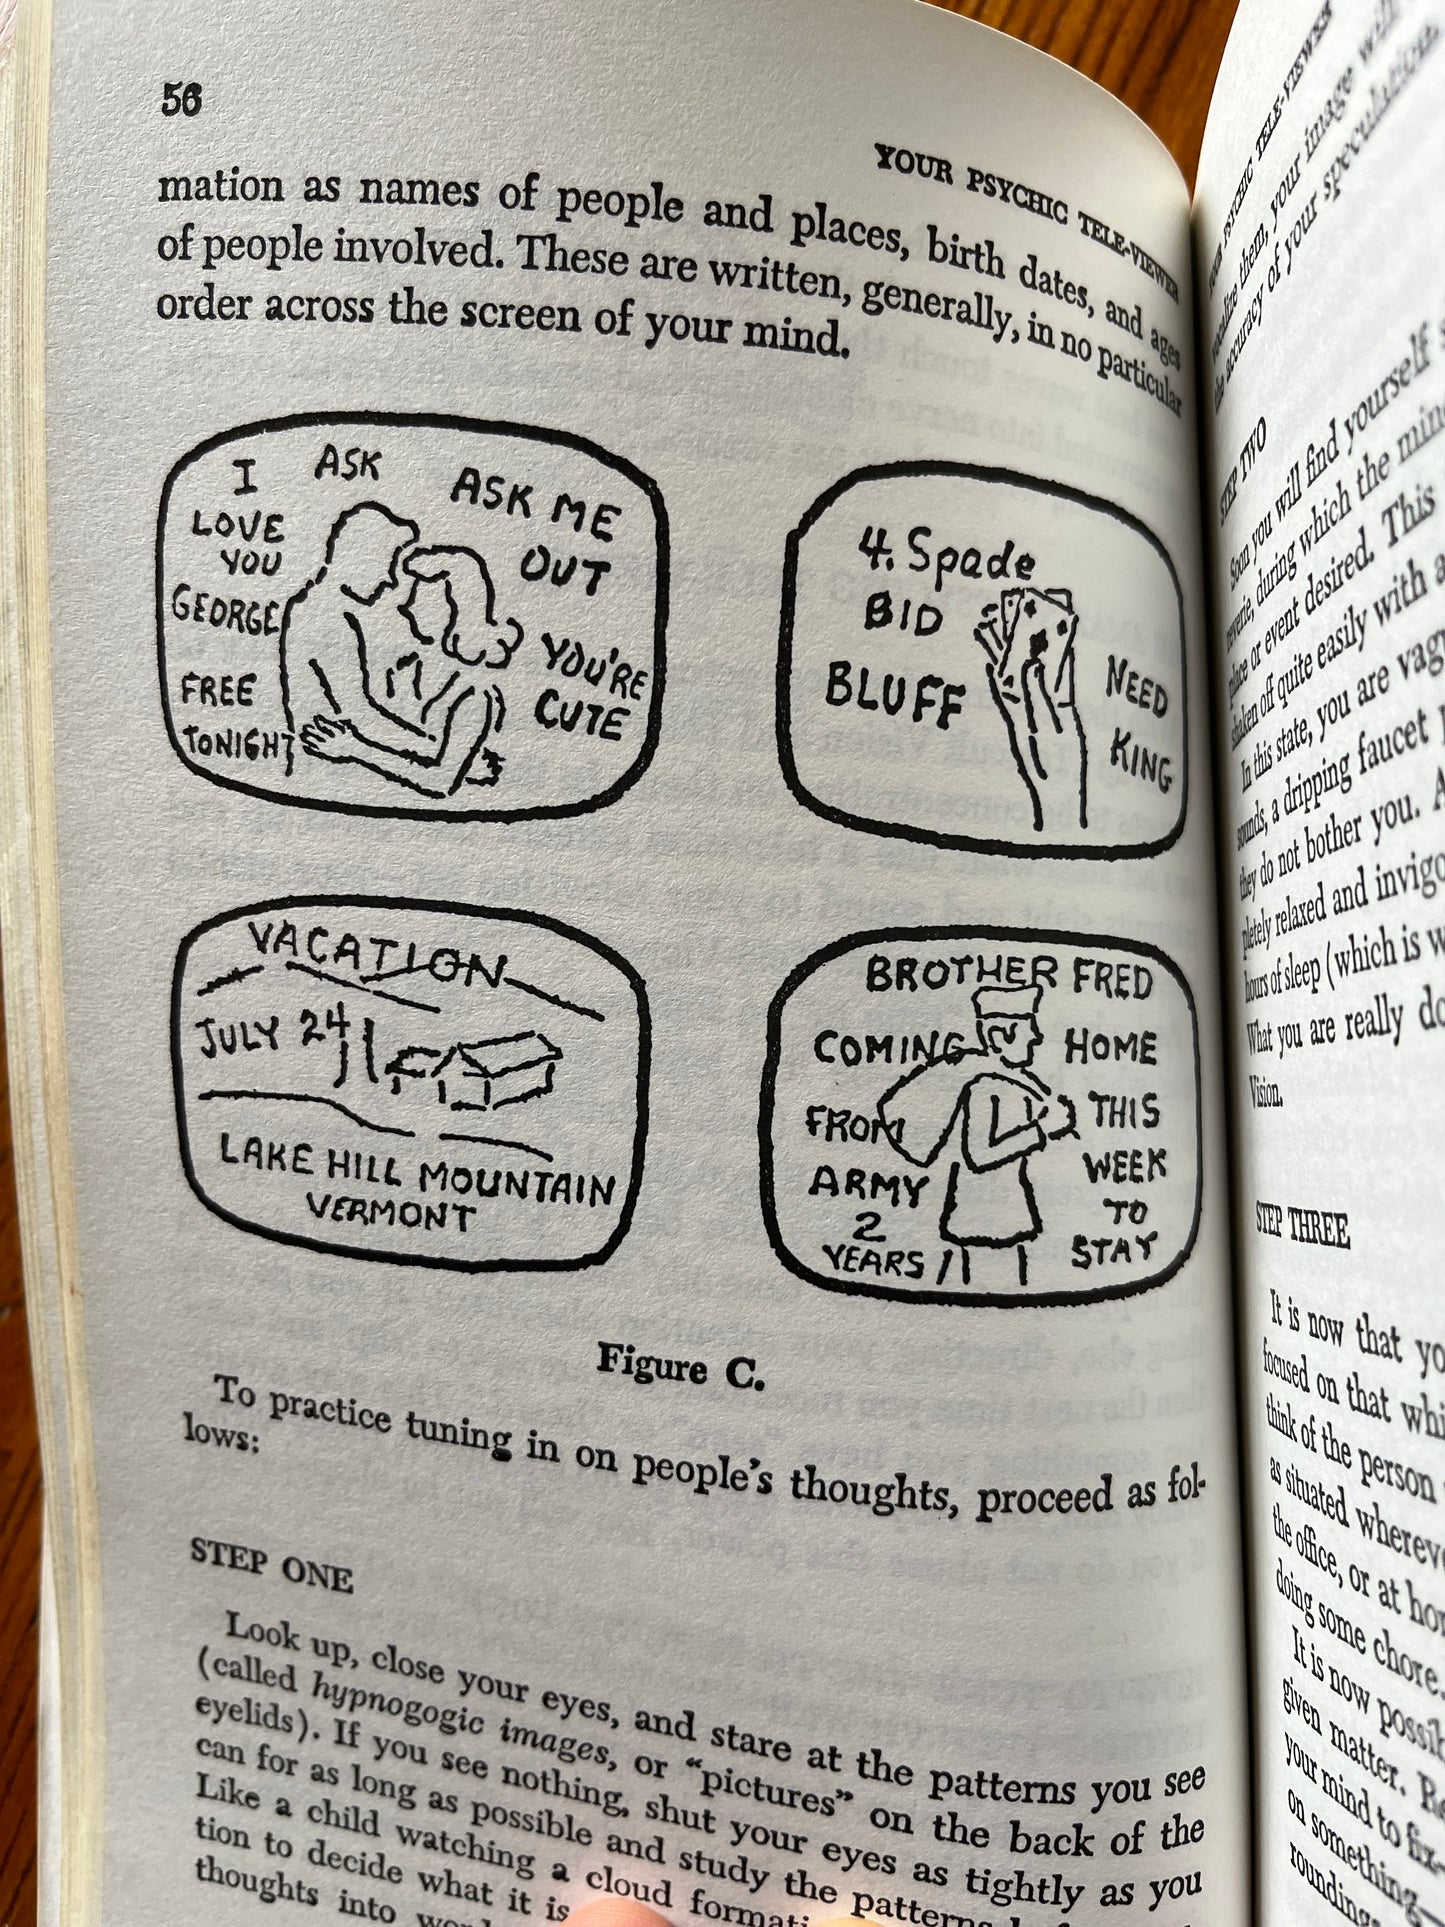 56
YOUR PSYCHIC TELE-VIEWER
mation as names of people and places, birth dates, and ages
of people involved. These are written, generally, in no particular
order across the screen of your mind.
I
LOVE
YOU
GEORGE
FREE
TONIGHT
ASK
ASK ME
OUT
YOU'RE
CUTE
4. Spade
BID
BLUFF
NEED
KING
VACATION
JULY 24
LAKE HILL MOUNTAIN
VERMONT
BROTHER FRED
COMING HOME
FROM THIS
ARMY WEEK
2 TO
YEARS STAY
Figure C.
To practice tuning in on people's thoughts, proceed as fol-
lows:
STEP ONE
Look up, close your eyes, and stare at the patterns you see
(called hypnogogic images, or "pictures" on the back of the
eyelids). If you see nothing, shut your eyes as tightly as you
can for as long as possible and study the patterns
Like a child watching a cloud
tion to decide what it is
thoughts into
YOUR PSYCHIC TELE-VIEWER
them, your image will
the accuracy of your speculations
STEP TWO
Soon you will find yourself
reverie, during which the
place or event desired. This
shaken off quite easily with a
In this state, you are
sounds, a dripping faucet
they do not bother you.
pletely relaxed and
hours of sleep (which is
What you are really
Vision.
STEP THREE
It is now that
focused on that
think of the person
as situated
the office, or at
doing some chore.
It is now
given matter.
your mind to fix
on something—